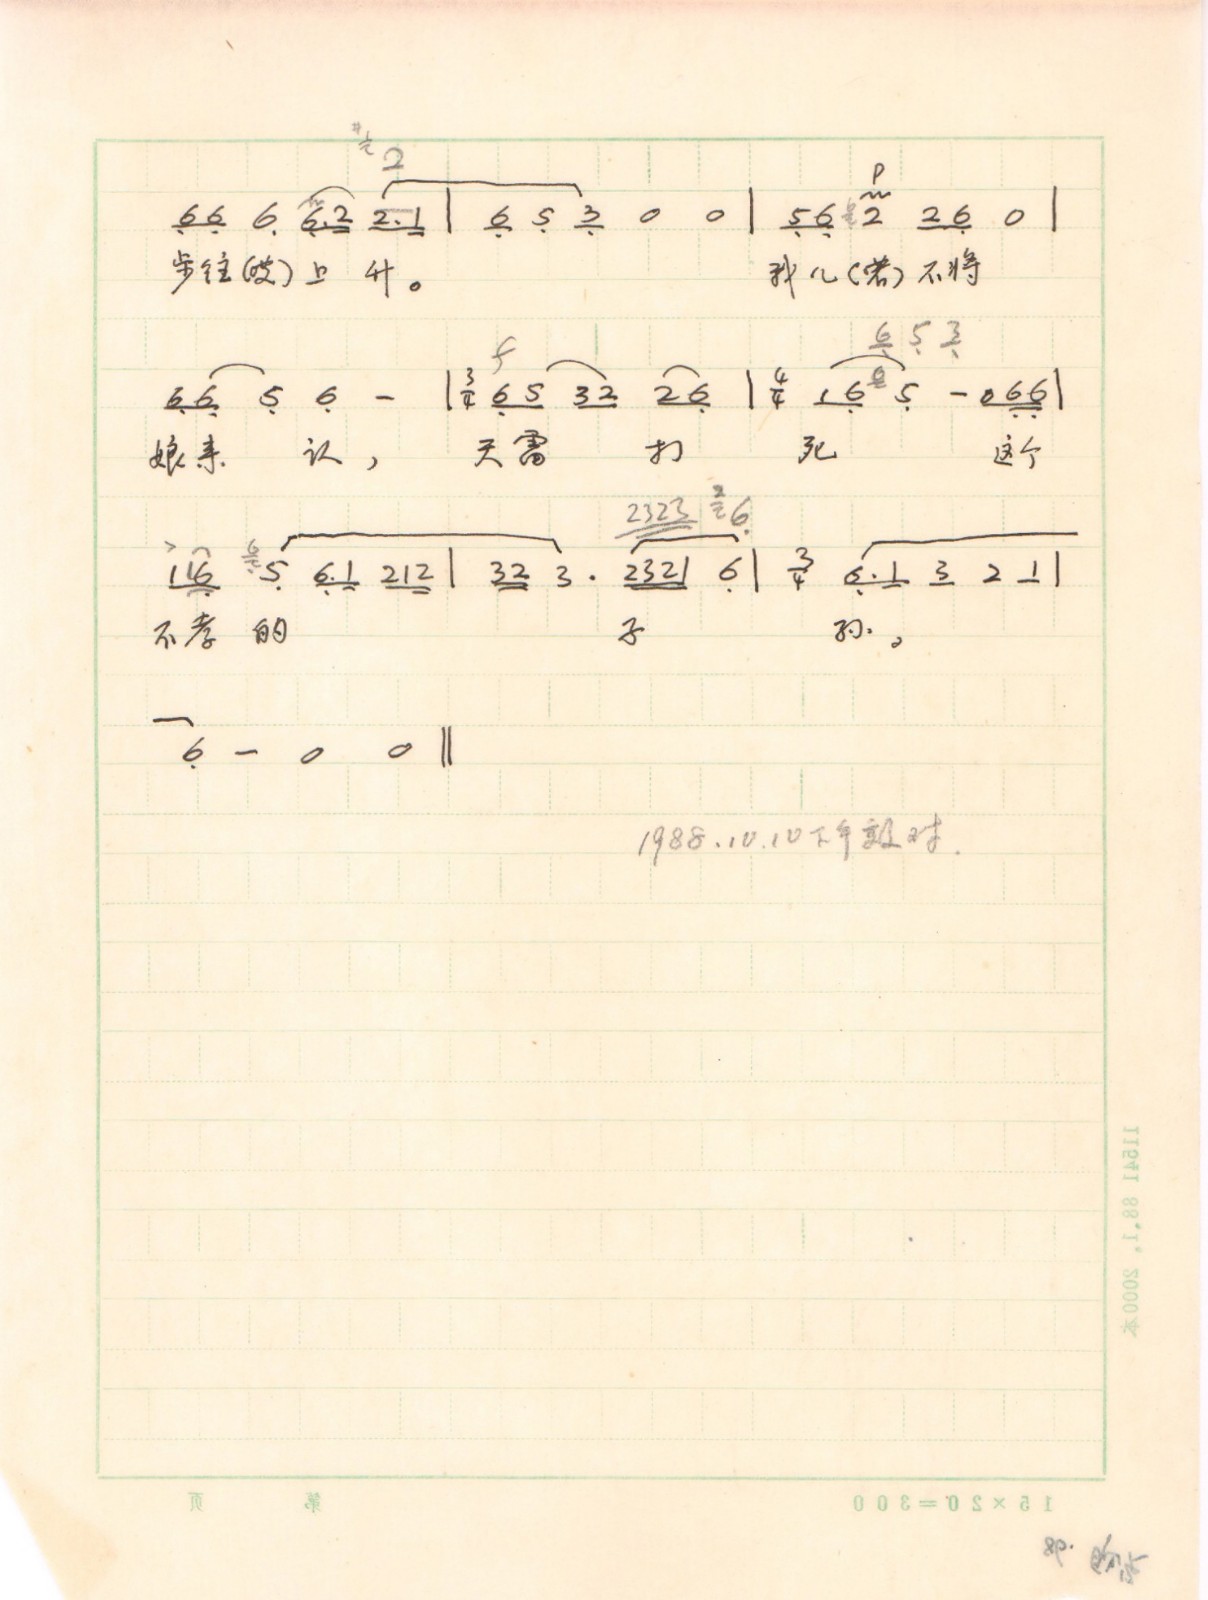 2
66 6 6.2 2.1 | 6 5 3 0 0 | 56 2 26 0 |
p
步往(哎)上升。 我儿(若)不将
6 5 3
66 5 6 - | 3/4 65 32 26 | 4/4 16 5 - 066 |
娘来认, 天雷打死 这个
2323 6
116 5 6.1 212 | 32 3. 2321 6 | 3/4 6.1 3 2 1 |
不孝的 子 孙。
6 - 0 0 ‖
1988.10.10下午校对.
11541 88.1. 2000本
第 页
15×20=300